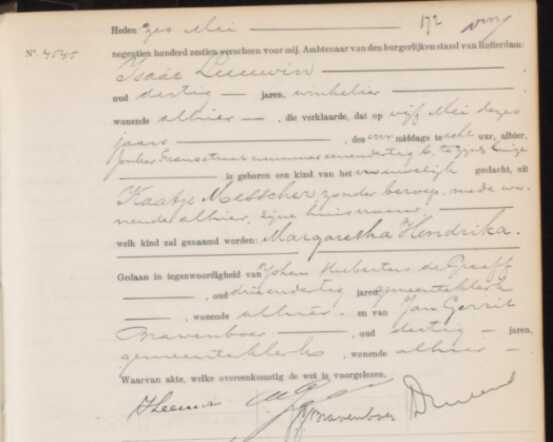 Heden zes Mei 172
negentien honderd zestien verscheen voor mij, Ambtenaar van den burgerlijken stand van Rotterdam:
No. 4545
Isaäc Leeuwin
oud dertig jaren, winkelier
wonende alhier, die verklaarde, dat op vijf Mei dezes
jaars, des voormiddags te acht uur, alhier,
Jonker Fransstraat nummer eenendertig b, te zijnen huize
is geboren een kind van het vrouwelijk geslacht, uit
Kaatje Messcher zonder beroep, mede wo-
nende alhier, zijne huisvrouw.
welk kind zal genaamd worden: Margaretha Hendrika.
Gedaan in tegenwoordigheid van Johan Hubertus de Graaff
, oud drieendertig jaren, gemeenteklerk
, wonende alhier en van Jan Gerrit
Bravenboer, oud dertig jaren,
gemeenteklerk, wonende alhier
Waarvan akte, welke overeenkomstig de wet is voorgelezen.
Bravenboer